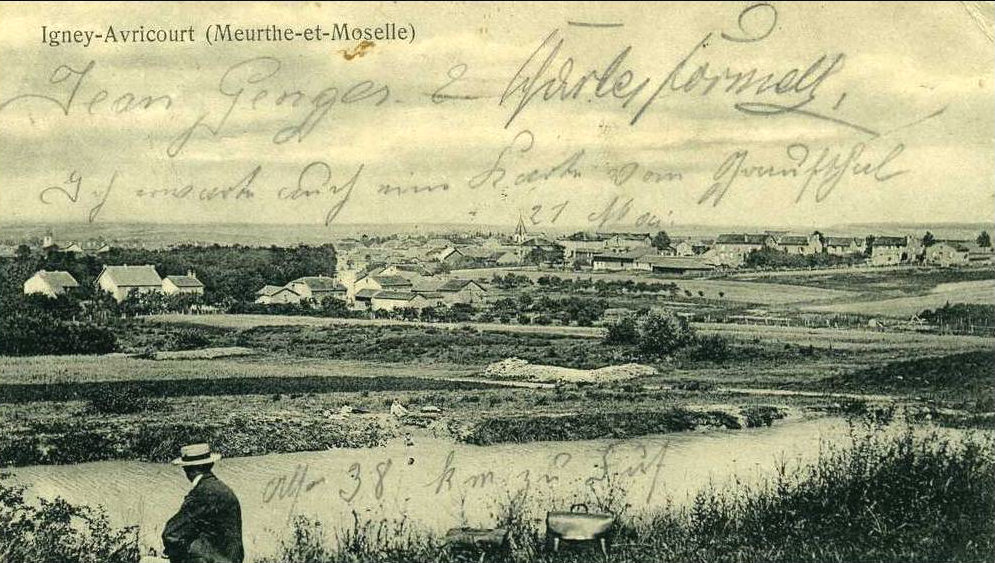 Igney-Avricourt (Meurthe-et-Moselle)
Jean Genges & Charles
Ich erwarte auch eine Karte vom Graufthal
21 Mai
38 km zu Fuß